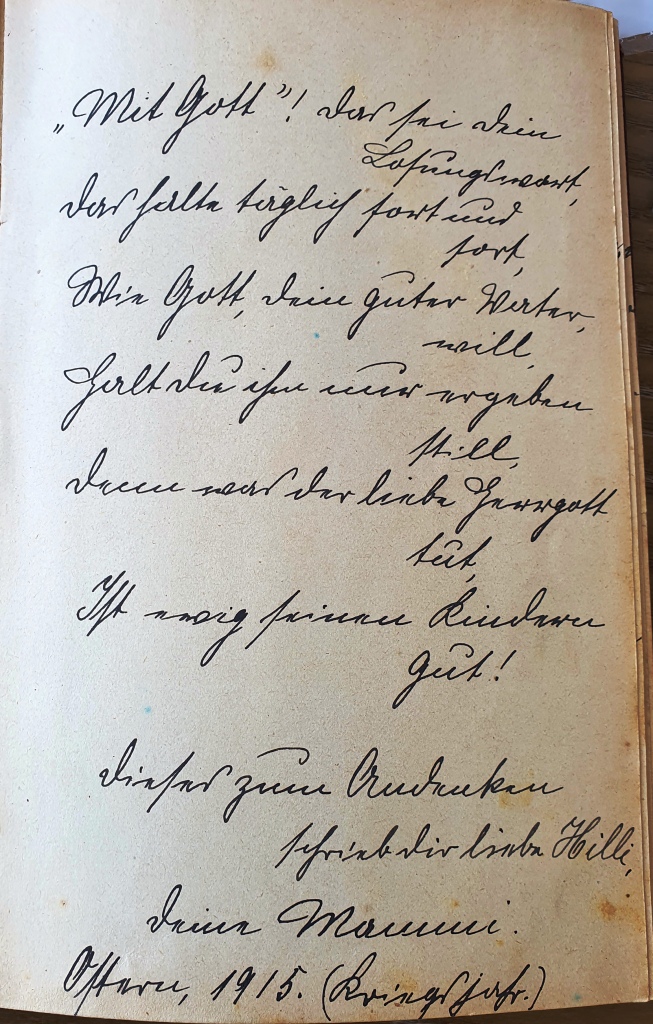 „Mit Gott"! das sei dein
Losungswort,
das halte täglich fort und
fort,
Wie Gott, dein guter Vater,
will,
Halt du ihm nur ergeben
still,
denn was der liebe Herrgott
tut,
Ist ewig seinen Kindern
gut!
Dieses zum Andenken
schrieb dir liebe Hilli,
deine Mammi.
Ostern, 1915. (Kriegsjahr.)